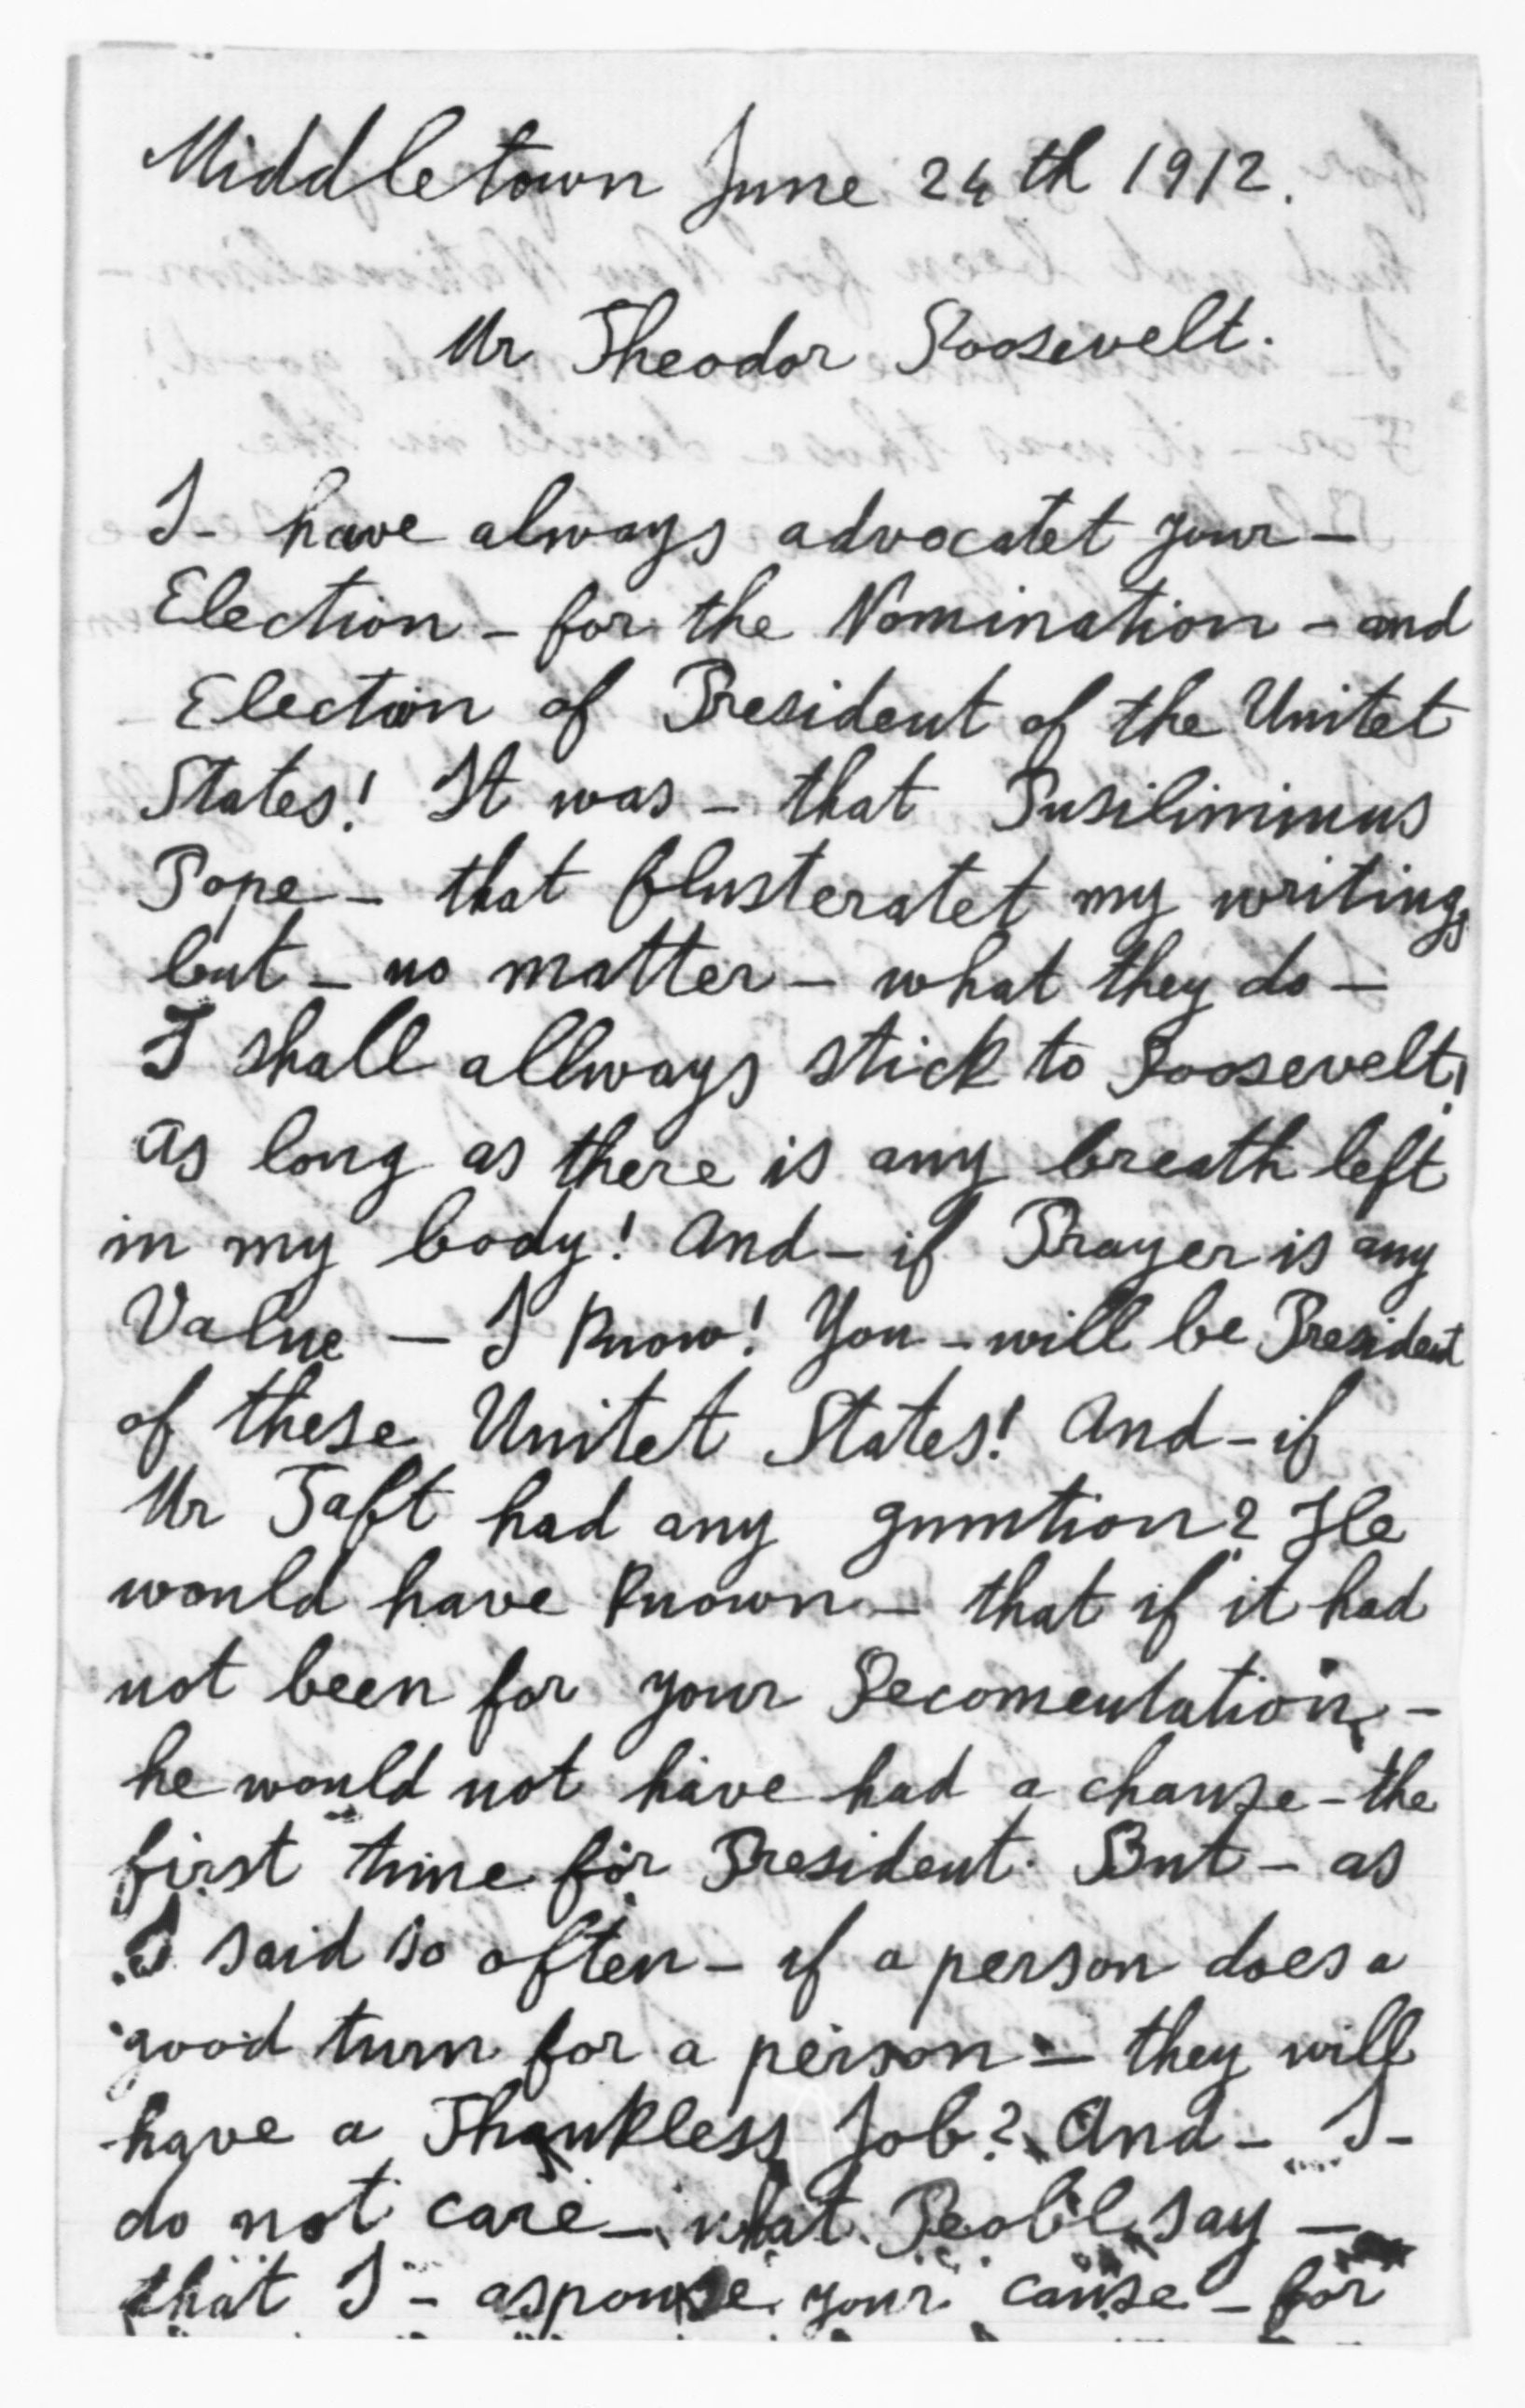 Middletown June 24th 1912.
Mr Theodor Roosevelt.
I - have always advocatet your -
Election - for the Nomination - and
Election of President of the Unitet
States! It was - that Pusilinimus
Pope - that flusteratet my writings
but - no matter - what they do -
I shall allways stick to Roosevelt!
as long as there is any breath left
in my body! And - if Prayer is any
Value - I know! You - will be President
of these Unitet States! And - if
Mr Taft had any gumtion? He
would have known - that if it had
not been for your Recomentation -
he would not have had a chanze - the
first time for President. But - as
I said so often - if a person does a
good turn for a person - they will
have a Thankless Job? And - I -
do not care - what Peobl say -
that I - asponse your cause - for